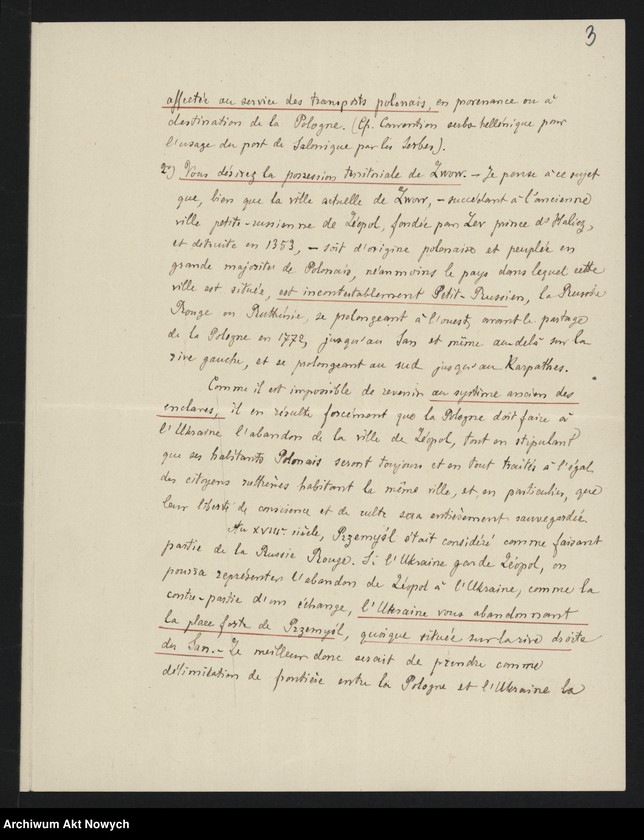 3
affectée au service des transports polonais, en provenance ou à
destination de la Pologne. (Cf. Convention serbo hellénique pour
l'usage du port de Salonique par les Serbes).
2°) Vous désirez la possession territoriale de Lwow. – Je pense à ce sujet
que, bien que la ville actuelle de Lwow, – succédant à l'ancienne
ville petite-russienne de Léopol, fondée par Lev prince d'Halicz,
et détruite en 1353, – soit d'origine polonaise et peuplée en
grande majorité de Polonais, néanmoins le pays dans lequel cette
ville est située, est incontestablement Petit-Russien, la Russie
Rouge ou Ruthénie, se prolongeant à l'ouest, avant le partage
de la Pologne en 1772, jusqu'au San et même au delà sur la
rive gauche, et se prolongeant au sud jusqu'au Karpathes.
Comme il est impossible de revenir au système ancien des
enclaves, il en résulte forcément que la Pologne doit faire à
l'Ukraine l'abandon de la ville de Léopol, tout en stipulant
que ses habitants Polonais seront toujours et en tout traités à l'égal
des citoyens ruthènes habitant la même ville, et, en particulier, que
leur liberté de conscience et de culte sera entièrement sauvegardée.
Au XVIIIe siècle, Przemyśl était considéré comme faisant
partie de la Russie Rouge. Si l'Ukraine garde Léopol, on
pourra représenter l'abandon de Léopol à l'Ukraine, comme la
contre-partie d'un échange, l'Ukraine vous abandonnant
la place forte de Przemyśl, quoique située sur la rive droite
du San. – Le meilleur donc serait de prendre comme
délimitation de frontière entre la Pologne et l'Ukraine la
Archiwum Akt Nowych